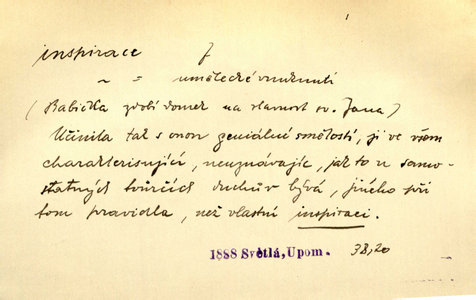 inspirace f
~ = umělecké vnuknutí
(Babička zdobí domek na slavnost sv. Jana)
Učinila tak s onou geniální smělostí, ji ve všem
charakterisující, neuznávajíc, jak to u samo-
statných tvůrčích duchův bývá, jiného při
tom pravidla, než vlastní inspiraci.
1888 Světlá, Upom. 38,20